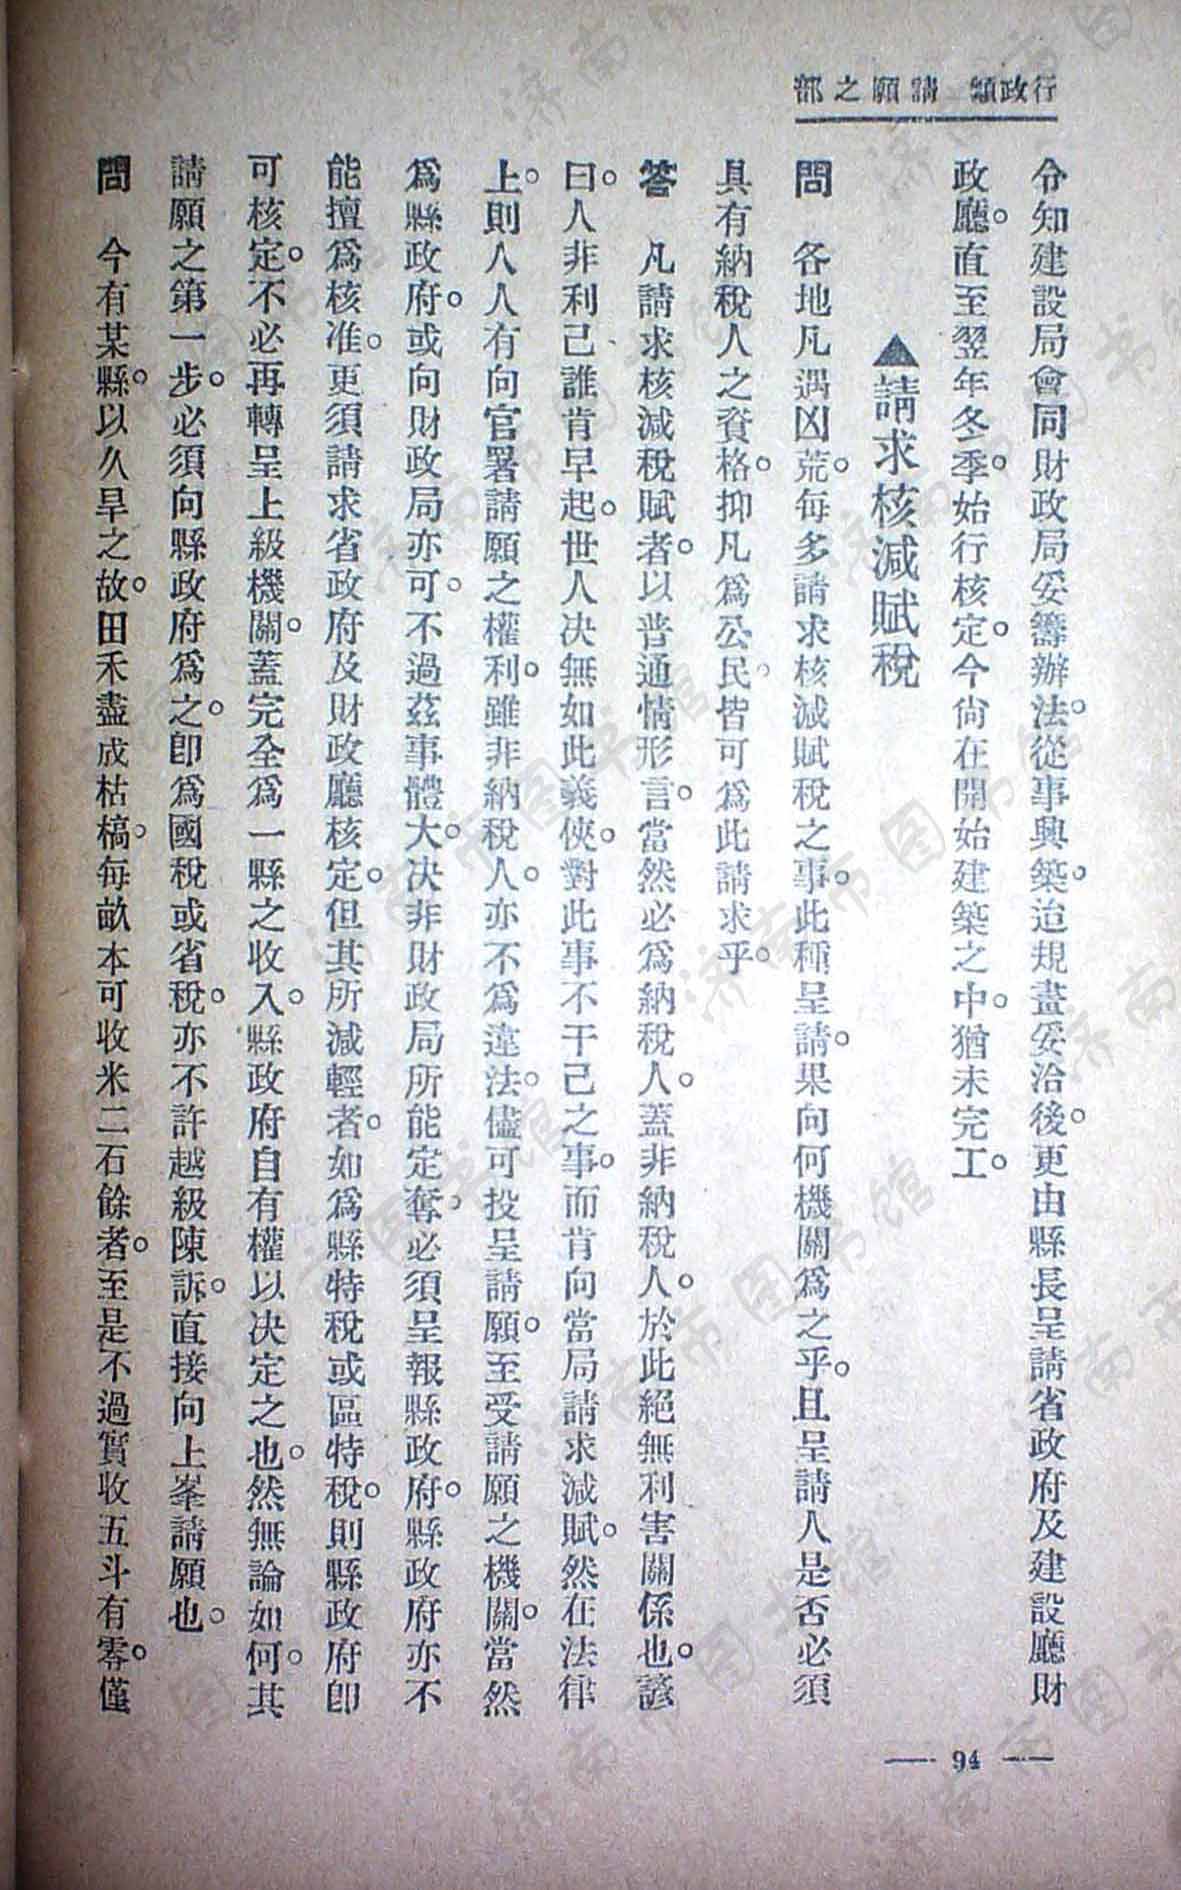 行政類　請願之部
令知建設局會同財政局妥籌辦法。從事興築。迨規畫妥洽後。更由縣長呈請省政府及建設廳財
政廳。直至翌年冬季。始行核定。今尙在開始建築之中。猶未完工。
▲請求核減賦稅
問　各地凡遇凶荒。每多請求核減賦稅之事。此種呈請。果向何機關爲之乎。且呈請人是否必須
具有納稅人之資格。抑凡爲公民。皆可爲此請求乎。
答　凡請求核減稅賦者。以普通情形言。當然必爲納稅人。蓋非納稅人。於此絕無利害關係也。諺
曰。人非利己、誰肯早起。世人决無如此義俠。對此事不干己之事。而肯向當局請求減賦。然在法律
上。則人人有向官署請願之權利。雖非納稅人。亦不爲違法。儘可投呈請願。至受請願之機關。當然
爲縣政府。或向財政局亦可。不過茲事體大。决非財政局所能定奪。必須呈報縣政府。縣政府亦不
能擅爲核准。更須請求省政府及財政廳核定。但其所減輕者。如爲縣特稅或區特稅。則縣政府卽
可核定。不必再轉呈上級機關。蓋完全爲一縣之收入。縣政府自有權以决定之也。然無論如何。其
請願之第一步。必須向縣政府爲之。卽爲國稅或省稅。亦不許越級陳訴。直接向上峯請願也。
問　今有某縣。以久旱之故。田禾盡成枯槁。每畝本可收米二石餘者。至是不過實收五斗有零。僅
— 94 —
济南市图书馆